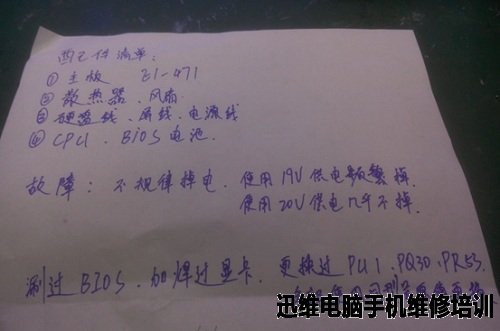 配件清单:
①主板 E1-471
②散热器、风扇
③硬盘线、屏线、电源线
④CPU、BIOS电池.
故障: 不规律掉电. 使用19V供电频繁掉.
使用20V供电几乎不掉.
刷过BIOS、加焊过显卡. 更换过PU1、PQ30、PR53
迅维电脑手机维修培训